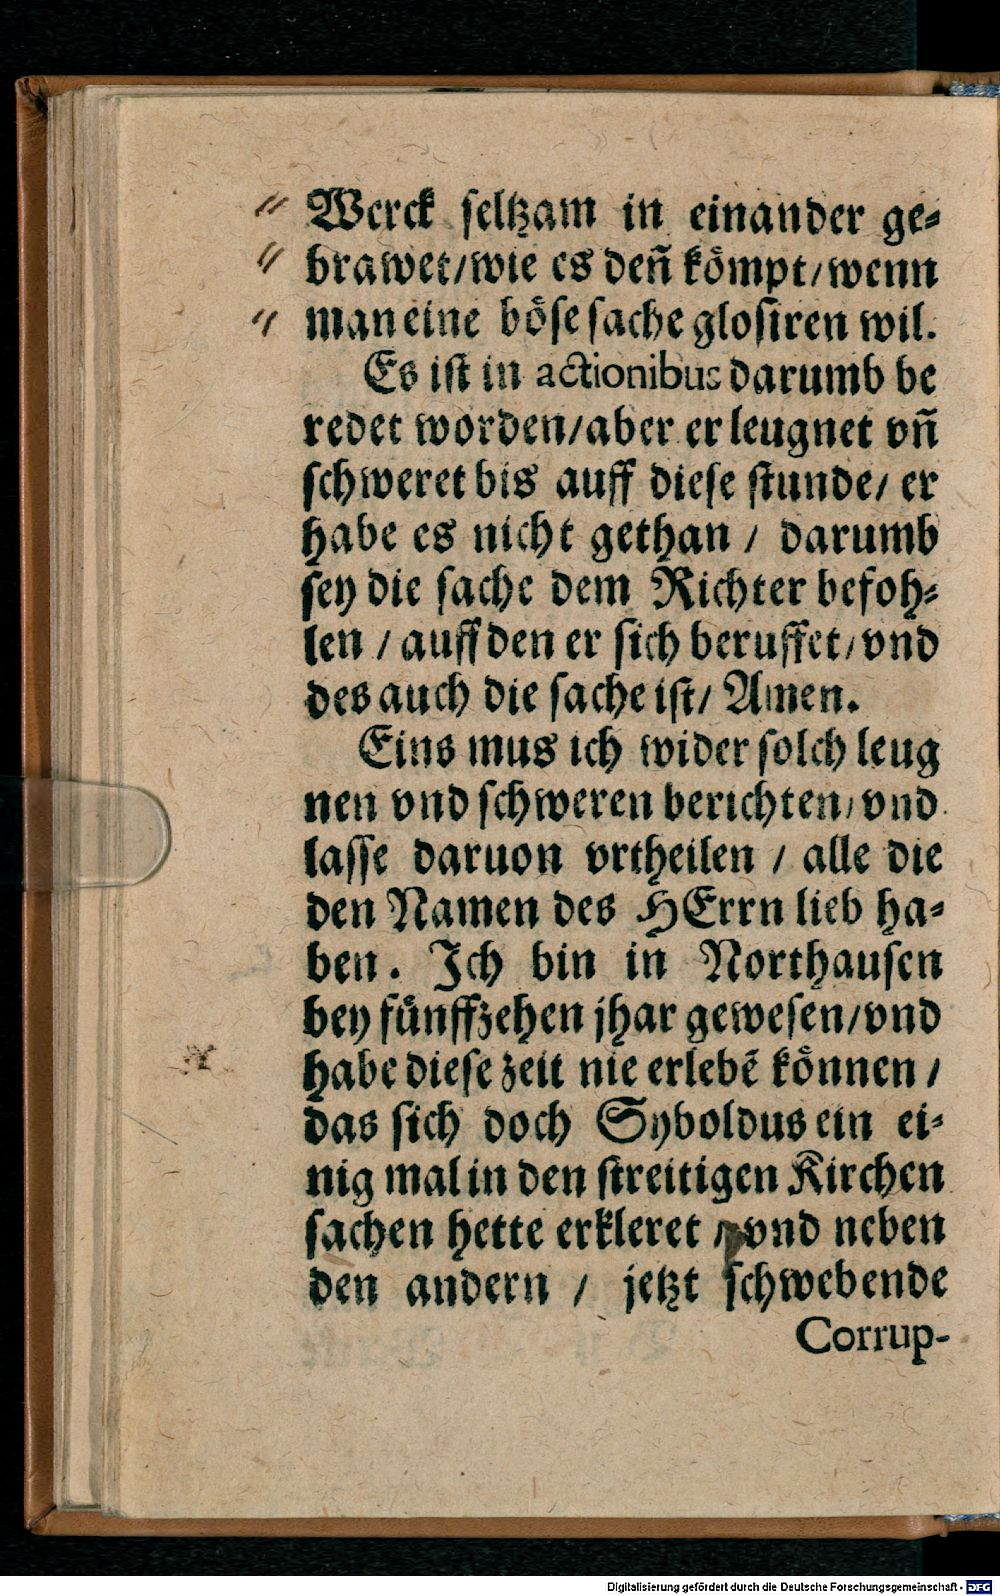 Werck seltzam in einander ge-
brawet/wie es deñ kömpt/wenn
man eine böse sache glosiren wil.
Es ist in actionibus darumb be
redet worden/aber er leugnet vñ
schweret bis auff diese stunde/ er
habe es nicht gethan / darumb
sey die sache dem Richter befoh-
len / auff den er sich beruffet/vnd
des auch die sache ist/ Amen.
Eins mus ich wider solch leug
nen vnd schweren berichten/vnd
lasse daruon vrtheilen / alle die
den Namen des HErrn lieb ha-
ben. Ich bin in Northausen
bey fünffzehen jhar gewesen/vnd
habe diese zeit nie erlebē können /
das sich doch Syboldus ein ei-
nig mal in den streitigen Kirchen
sachen hette erkleret / vnd neben
den andern / jetzt schwebende
Corrup-
Digitalisierung gefördert durch die Deutsche Forschungsgemeinschaft - DFG